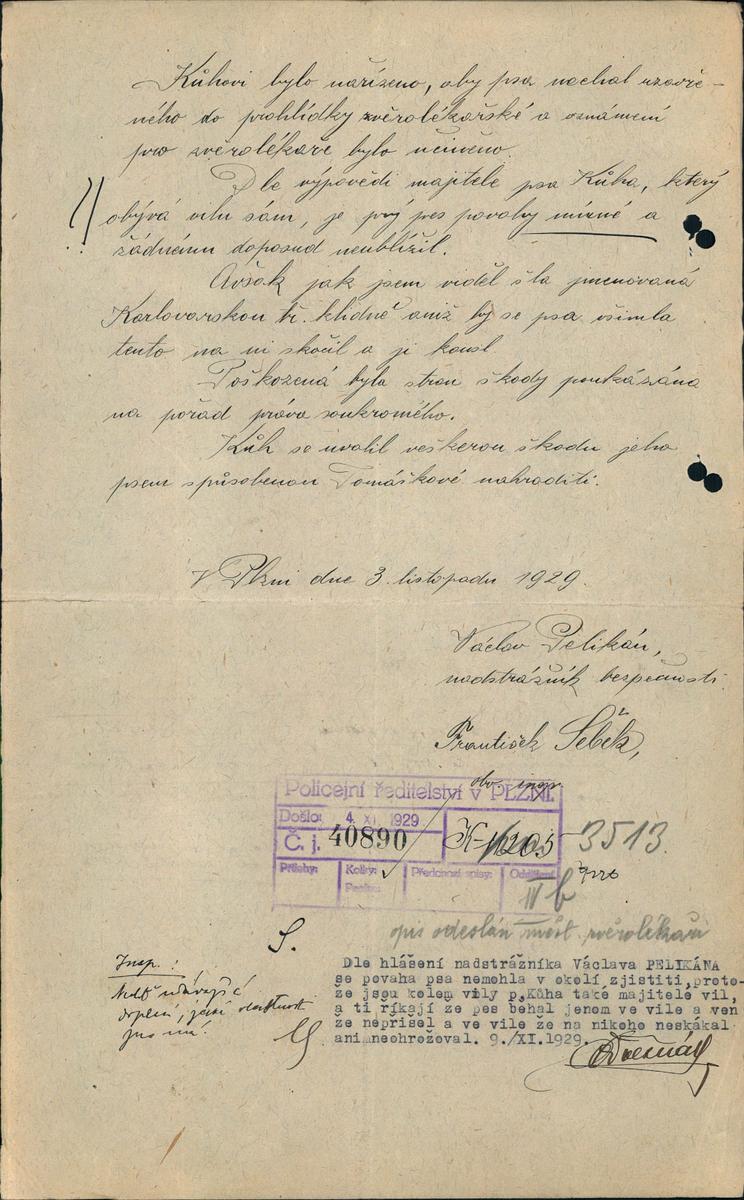 Kůhovi bylo nařízeno, aby psa nechal uzavře-
ného do prohlídky zvěrolékařské a oznámení
pro zvěrolékaře bylo učiněno.
Dle výpovědi majitele psa Kůha, který
obývá vilu sám, je prý pes povahy mírné a
žádnému doposud neublížil.
Avšak jak jsem viděl šla jmenovaná
Karlovarskou tř. klidně aniž by se psa všimla
tento na ni skočil a ji kousl.
Poškozená byla stran škody poukázána
na pořad práva soukromého.
Kůh se uvolil veškerou škodu jeho
psem způsobenou Tomáškové nahraditi.
V Plzni dne 3. listopadu 1929.
Václav Pelikán,
nadstrážník bezpečnosti.
František Šebek,
obv. insp.
Policejní ředitelství v PLZNI.
Došlo: 4. XI. 1929
Č. j. 40890
K-1205
3513.
Přílohy:
Kolky:
Předchozí spisy:
Oddělení
IV b
opis odeslán měst. zvěrolékaři
S.
Dle hlášení nadstrážníka Václava PELIKÁNA
se povaha psa nemohla v okolí zjistiti,proto-
že jsou kolem vily p.Kůha také majitelé vil,
a ti říkají že pes běhal jenom ve vile a ven
že nepřišel a ve vile že na nikoho neskákal
ani neohrožoval. 9./XI.1929.
Insp.: